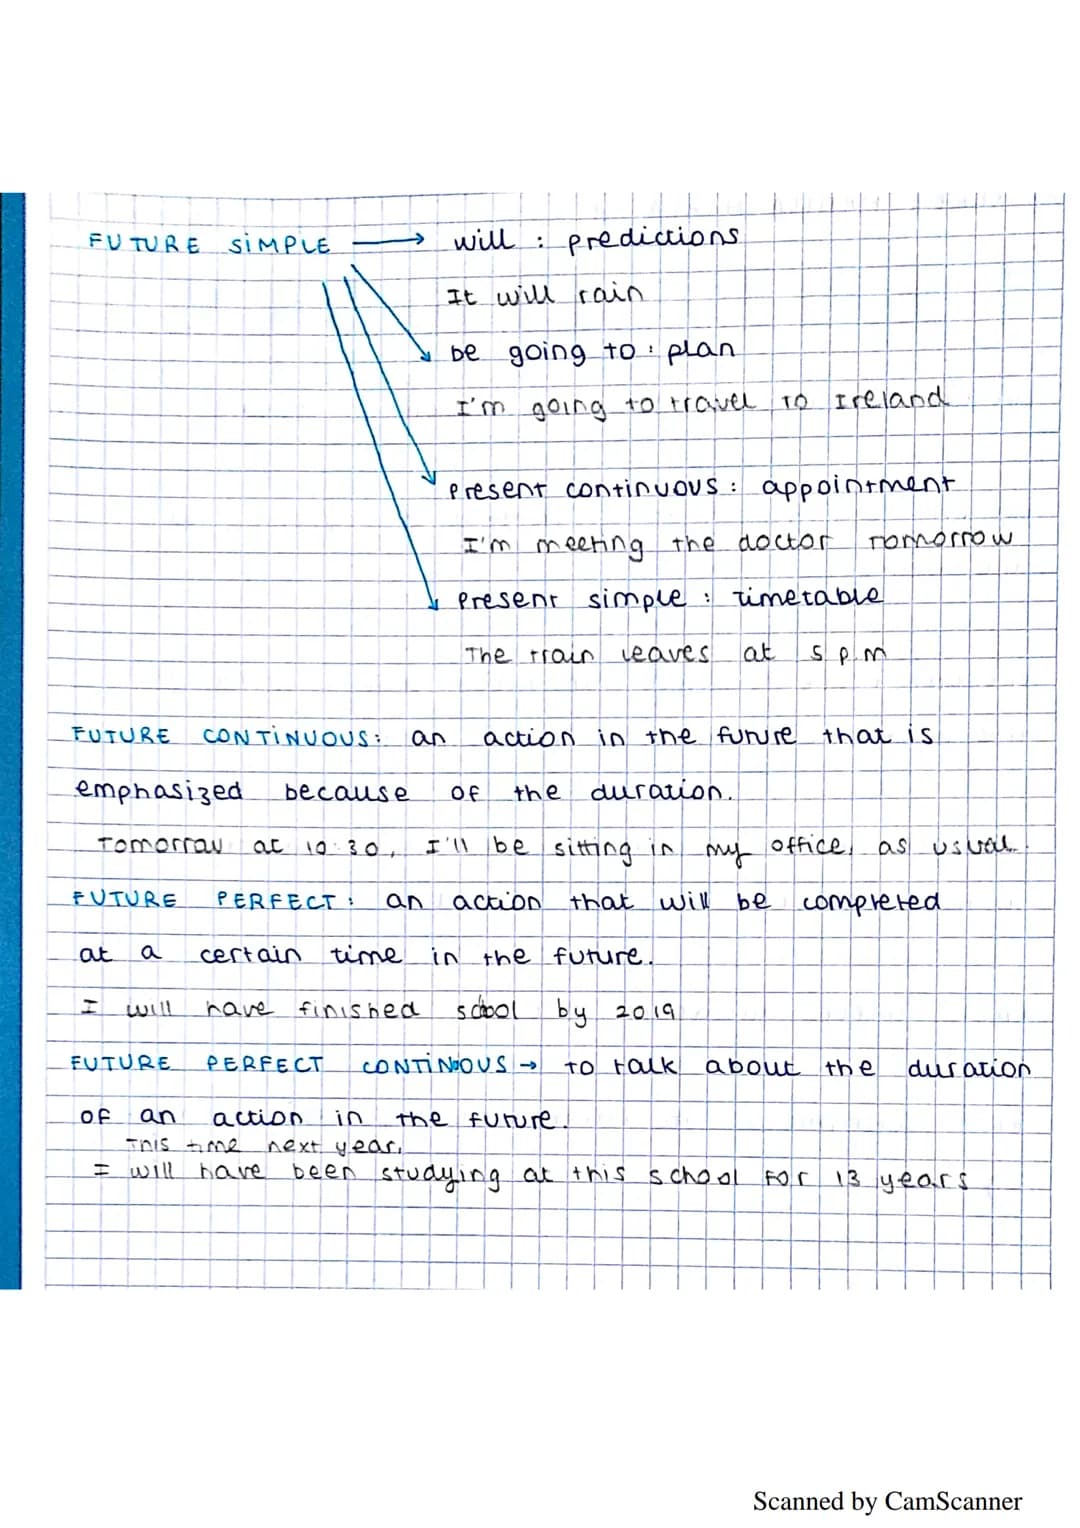 FUTURE SIMPLE → will : predictions
It will rain
be going to : plan
I'm going to travel to Ireland
Present continuous : appointment
I'm meeting the doctor tomorrow
Present simple : timetable
The train leaves at 5 p.m
FUTURE CONTINUOUS: an action in the future that is
emphasized because of the duration.
Tomorrow at 10:30, I'll be sitting in my office, as usual.
FUTURE PERFECT: an action that will be completed
at a certain time in the future.
I will have finished school by 2019
FUTURE PERFECT CONTINUOUS → to talk about the duration
of an action in the future.
This time next year,
I will have been studying at this school for 13 years
Scanned by CamScanner